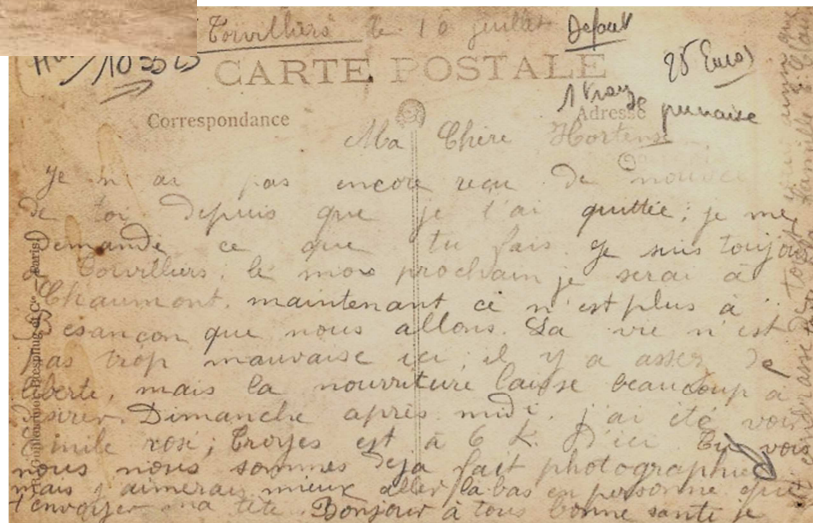 Torvilliers le 16 juillet
Defaut
10 5525
CARTE POSTALE
25 Euros
1 trou de punaise
Correspondance
Adresse
Ma Chère Hortense
Je n ai pas encore reçu de
de toi depuis que je t'ai quittée ; je me
demande ce que tu fais. Je suis toujou
a Torvilliers, le mois prochain je serai à
Chaumont, maintenant ce n'est plus à
Besançon que nous allons. La vie n'est
pas trop mauvaise ici, il y a assez de
liberté, mais la nourriture laisse beaucoup à
désirer. Dimanche après midi, j'ai été voir
Emile rosé ; Troyes est à 6 K. d'ici. Tu vois
nous nous sommes déja fait photographier
mais j'aimerais mieux aller la bas en personne que
t'envoyer ma tête. Bonjour à tous bonne santé je